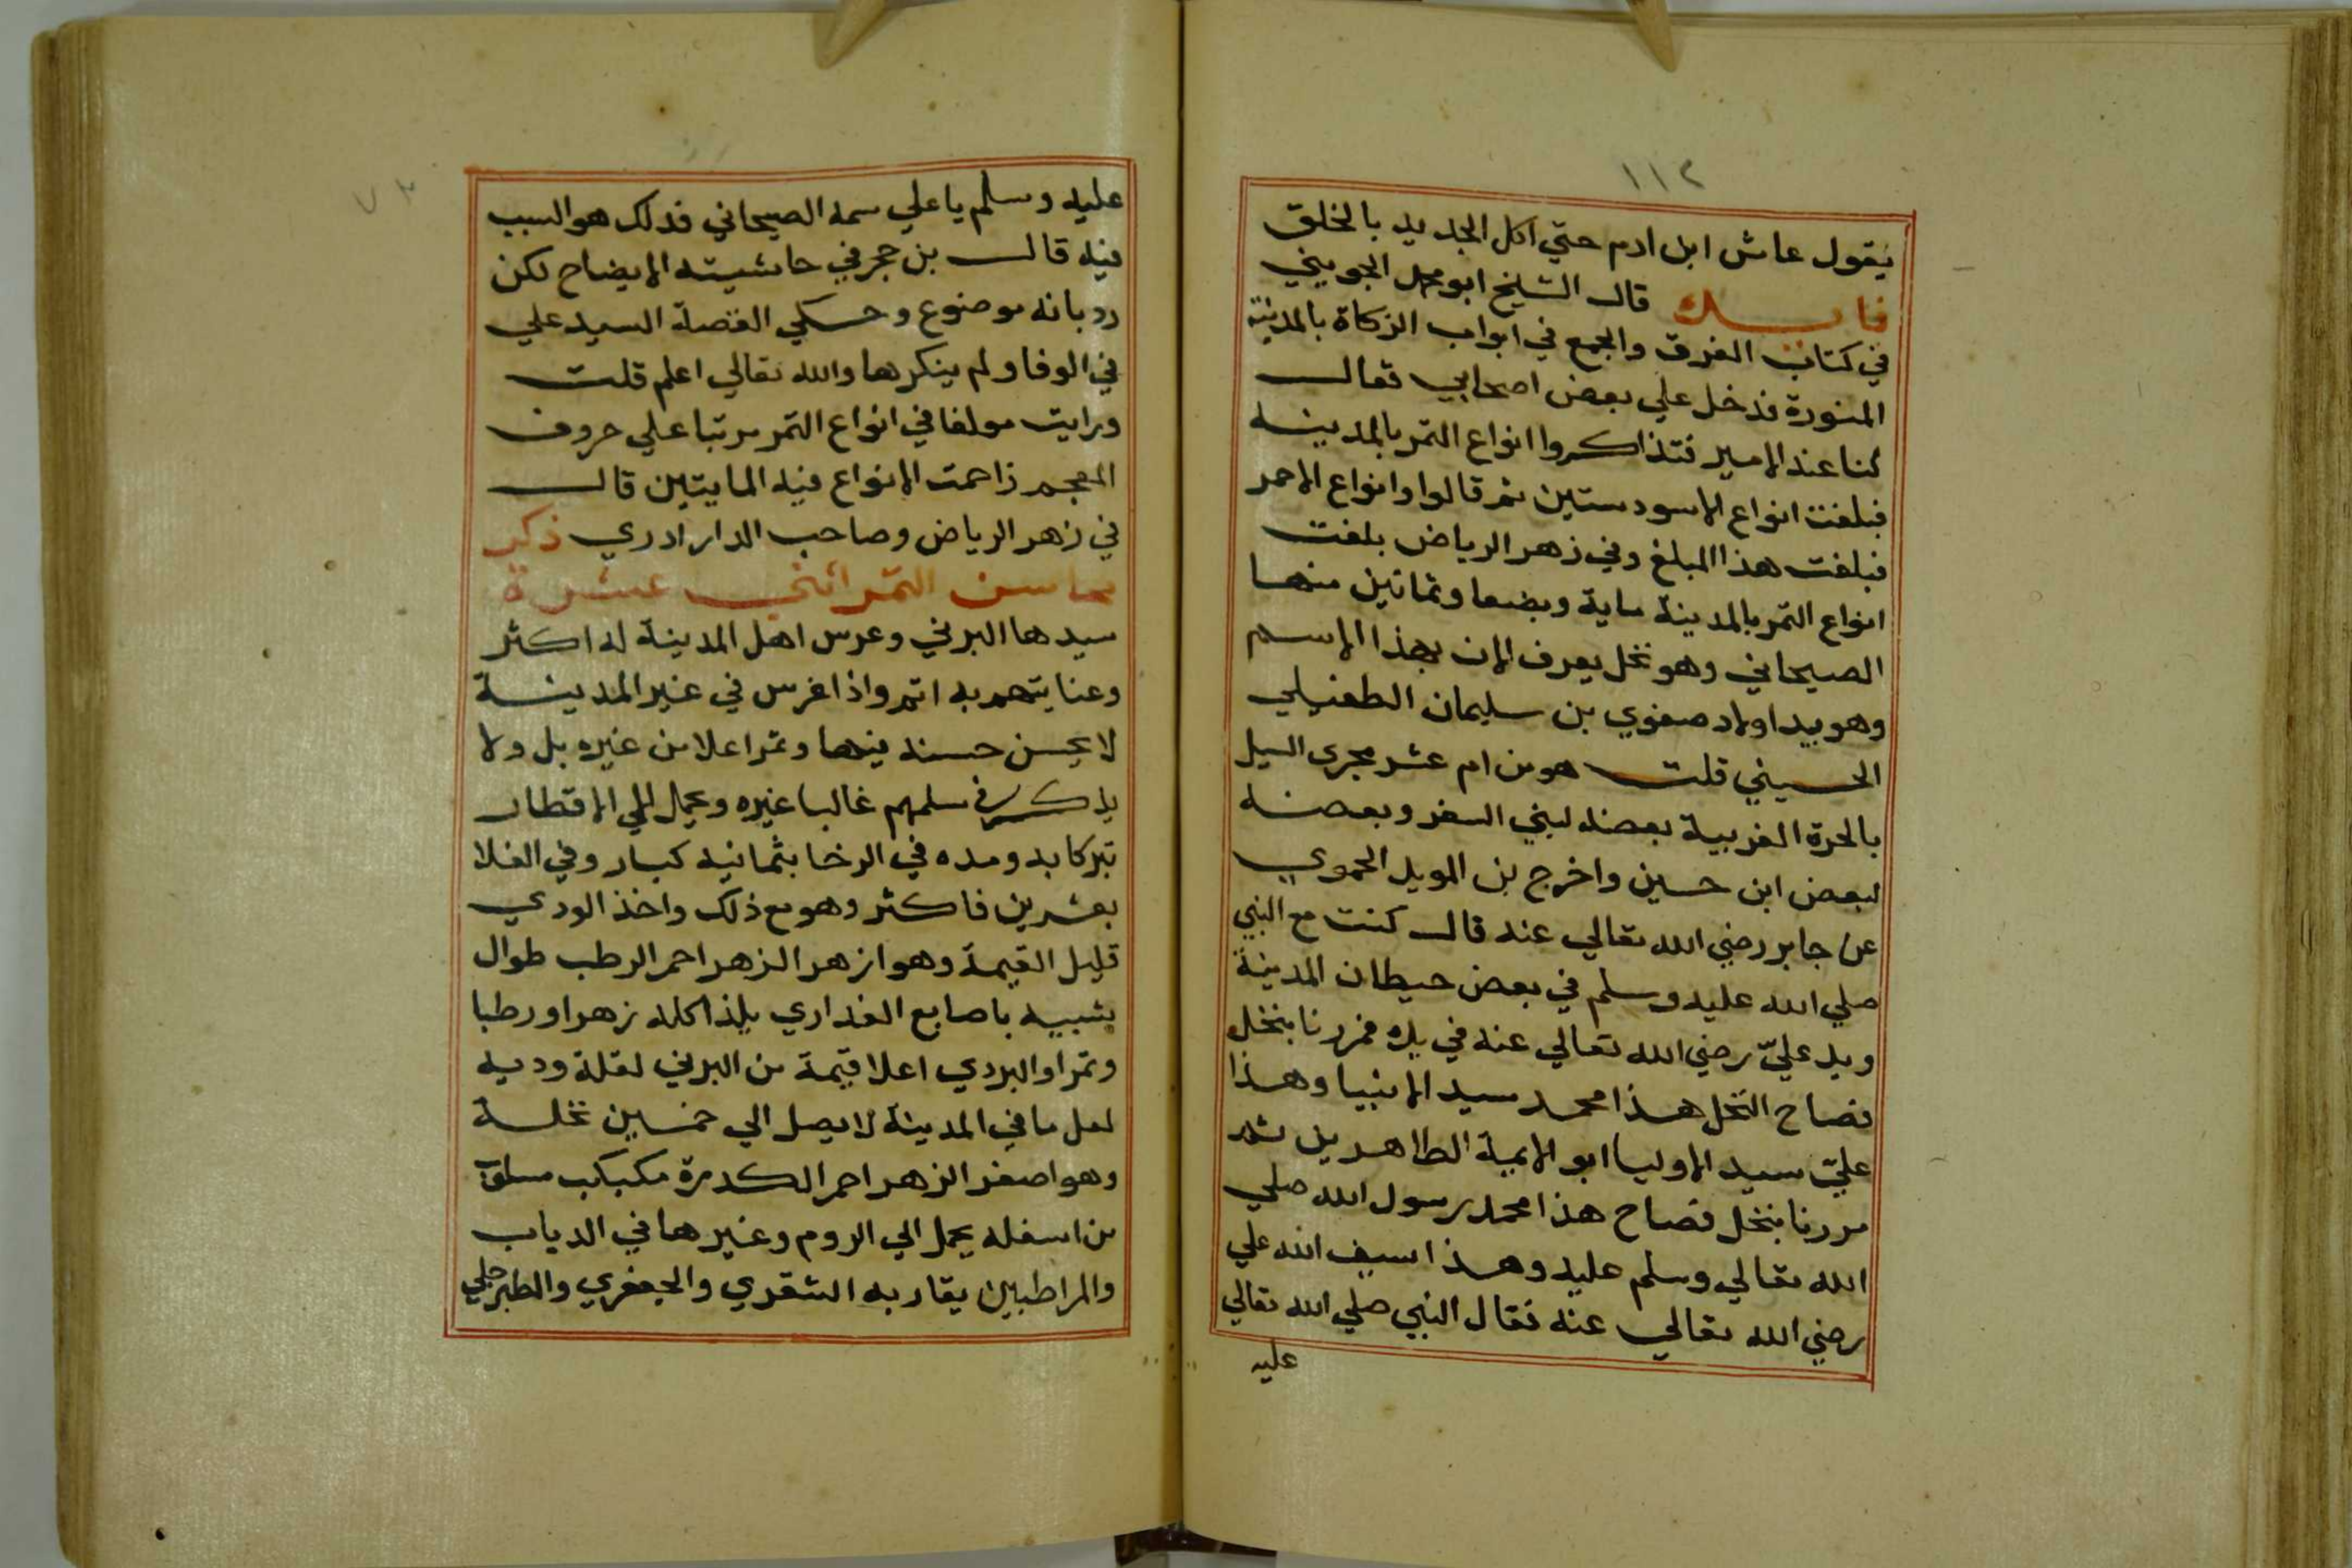 ١١٢
يقول عاش ابن ادم حتي اكل الجديد بالخلق
فايدة قال الشيخ ابو محمد الجويني
في كتاب الفرق والجمع في ابواب الزكاة بالمدينة
المنورة فدخل علي بعض اصحابي فقال
كنا عند الامير فتذاكروا انواع التمر بالمدينة
فبلغت انواع الاسود ستين ثم قالوا وانواع الاحمر
فبلغت هذا المبلغ وفي زهر الرياض بلغت
انواع التمر بالمدينة ماية وبضعا وثمانين منها
الصيحاني وهو نخل يعرف الان بهذا الاسم
وهو بيد اولاد صفوي بن سليمان الطفيلي
الحسيني قلت هو من ام عشر مجرى السيل
بالحرة الغربية بعضه لبني السفر وبعضه
لبعض ابن حسين واخرج بن المويد الحموي
عن جابر رضي الله تعالي عنه قال كنت مع النبي
صلي الله عليه وسلم في بعض حيطان المدينة
ويد عليّ رضي الله تعالي عنه في يده فمررنا بنخل
فصاح النخل هذا محمد سيد الانبيا وهذا
عليّ سيد الاوليا ابو الايمة الطاهرين ثم
مررنا بنخل فصاح هذا محمد رسول الله صلي
الله تعالي وسلم عليه وهذا سيف الله علي
رضي الله تعالي عنه فقال النبي صلي الله تعالي
عليه
٧٣
عليه وسلم يا علي سمه الصيحاني فذلك هو السبب
فيه قال بن حجر في حاشيته الايضاح لكن
رد بانه موضوع وحكي القصة السيد علي
في الوفا ولم ينكرها والله تعالي اعلم قلت
ورايت مولفا في انواع التمر مرتبا علي حروف
المعجم زاحمت الانواع فيه المايتين قال
في زهر الرياض وصاحب الدار ادري ذكر
محاسن التمر اثني عشرة
سيدها البرني وغرس اهل المدينة له اكثر
وعنايتهم به اتم واذا غرس في غير المدينة
لا يحسن حسنه فيها وتمرا علا من غيره بل ولا
يذكر في سلمهم غالبا غيره ويحمل الي الاقطار
تبركا به ومده في الرخا بثمانيه كبار وفي الغلا
بعشرين فاكثر وهو مع ذلك واخذ الودي
قليل القيمة وهو ازهر الزهر احمر الرطب طوال
شبيه باصابع العذاري يلذ اكله زهرا ورطبا
وتمرا والبردي اعلا قيمة من البرني لقلة وديه
لعل ما في المدينة لا يصل الي خمسين نخلة
وهو اصفر الزهر احمر الكدرة مكبكب مسلوق
من اسفله يحمل الي الروم وغيرها في الدياب
والمراطبين يقاربه الشقري والجعفري والطبرجلي